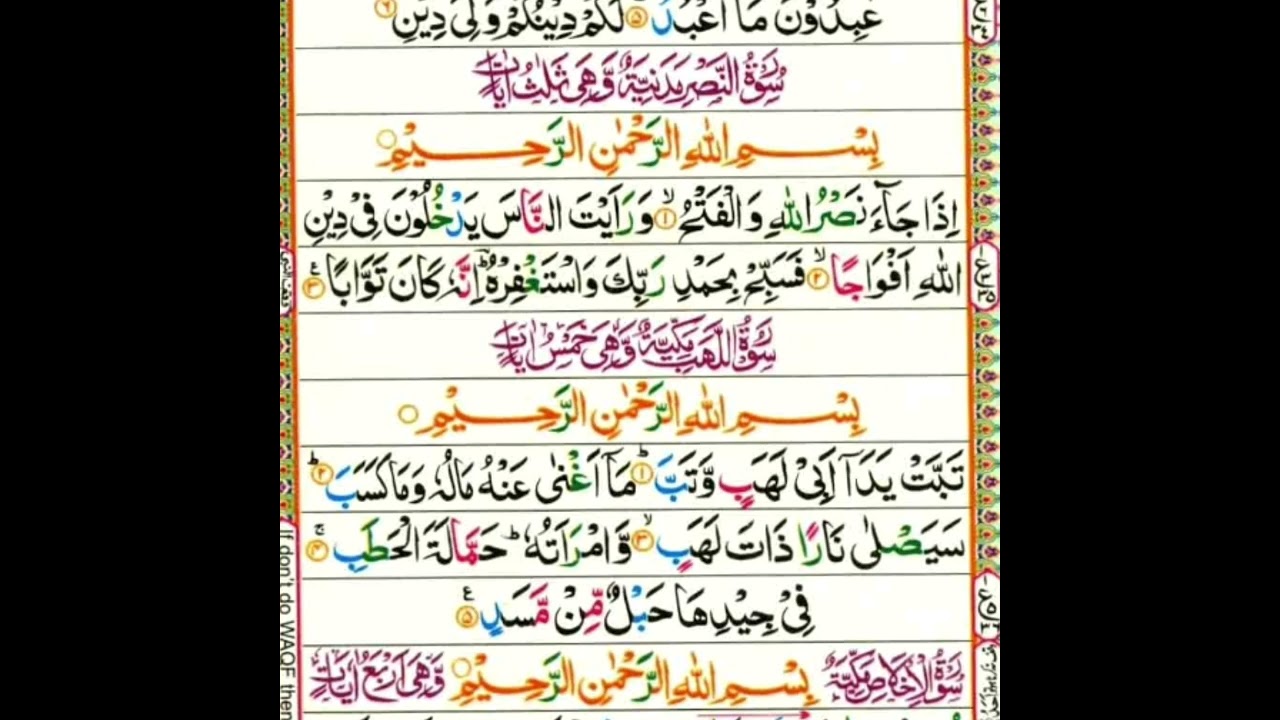 عٰبِدُوْنَ مَاۤ اَعْبُدُ ۵ لَكُمْ دِیْنُكُمْ وَلِیَ دِیْنِ ۶
سُوْرَةُ النَّصْرِ مَدَنِیَّةٌ وَّهِیَ ثَلٰثُ اٰیَاتٍ
بِسْمِ اللّٰهِ الرَّحْمٰنِ الرَّحِیْمِ
اِذَا جَآءَ نَصْرُ اللّٰهِ وَالْفَتْحُ ۱ وَرَاَیْتَ النَّاسَ یَدْخُلُوْنَ فِیْ دِیْنِ
اللّٰهِ اَفْوَاجًا ۲ فَسَبِّحْ بِحَمْدِ رَبِّكَ وَاسْتَغْفِرْهُ ؕ اِنَّهٗ كَانَ تَوَّابًا ۳
سُوْرَةُ اللَّهَبِ مَكِّیَّةٌ وَّهِیَ خَمْسُ اٰیَاتٍ
بِسْمِ اللّٰهِ الرَّحْمٰنِ الرَّحِیْمِ
تَبَّتْ یَدَاۤ اَبِیْ لَهَبٍ وَّتَبَّ ۱ مَاۤ اَغْنٰی عَنْهُ مَالُهٗ وَمَا كَسَبَ ۲
سَیَصْلٰی نَارًا ذَاتَ لَهَبٍ ۳ وَّامْرَاَتُهٗ ؕ حَمَّالَةَ الْحَطَبِ ۴
فِیْ جِیْدِهَا حَبْلٌ مِّنْ مَّسَدٍ ۵
سُوْرَةُ الْاِخْلَاصِ مَكِّیَّةٌ بِسْمِ اللّٰهِ الرَّحْمٰنِ الرَّحِیْمِ وَّهِیَ اَرْبَعُ اٰیَاتٍ
If don't do WAQF then